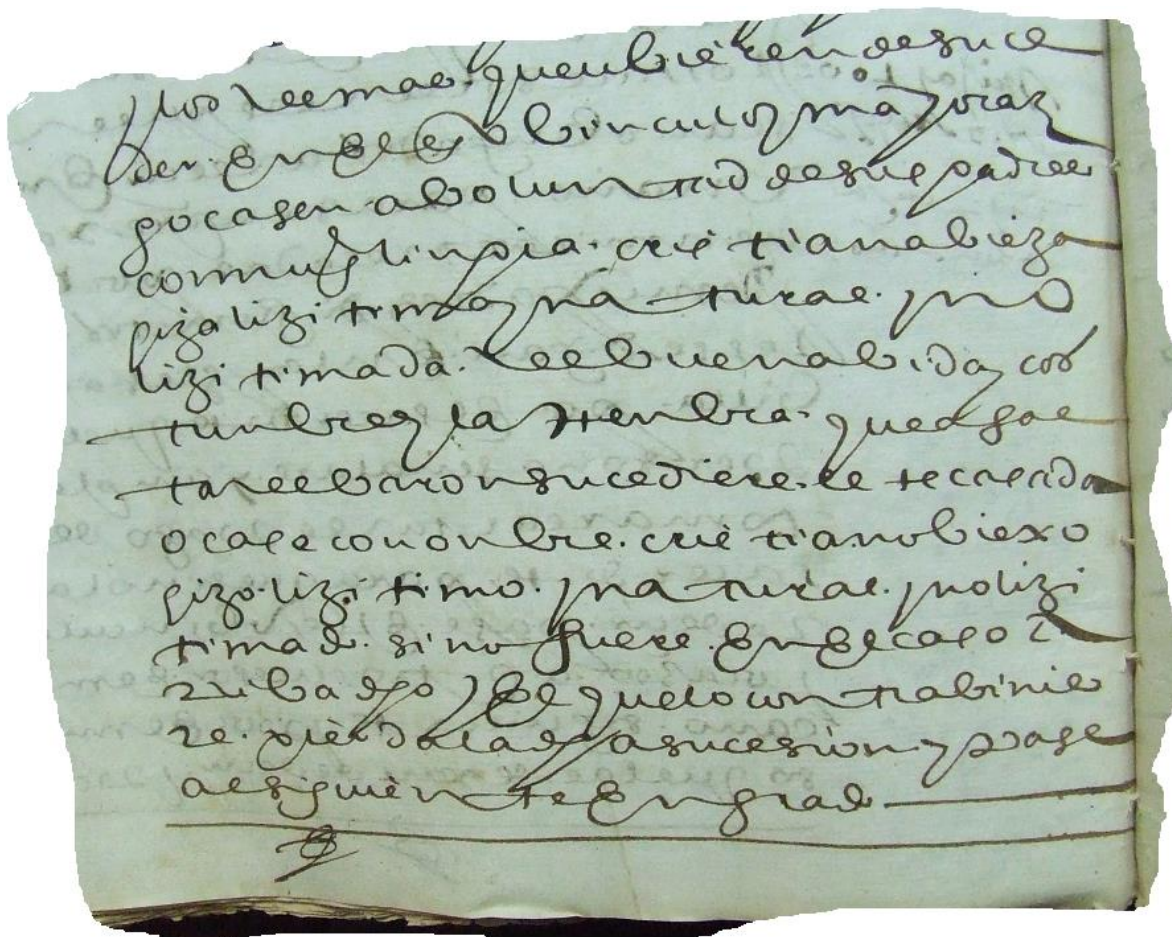 y los demas que ubieren de suce
der en este binculo y mayoraz
go casen a boluntad de sus padres
con muger linpia cristiana bieja
hija lizitima y natural y no
lizitimada de buena bida y cos
tunbres y la henbra que a fal
ta de baron sucediere este casada
o case con onbre cristiano biexo
hijo lizitimo y natural y no lizi
timado si no fuere en el caso a
rriba dho y el que lo contrabinie
re pierda la dha susesion y pase
al siguiente en grado